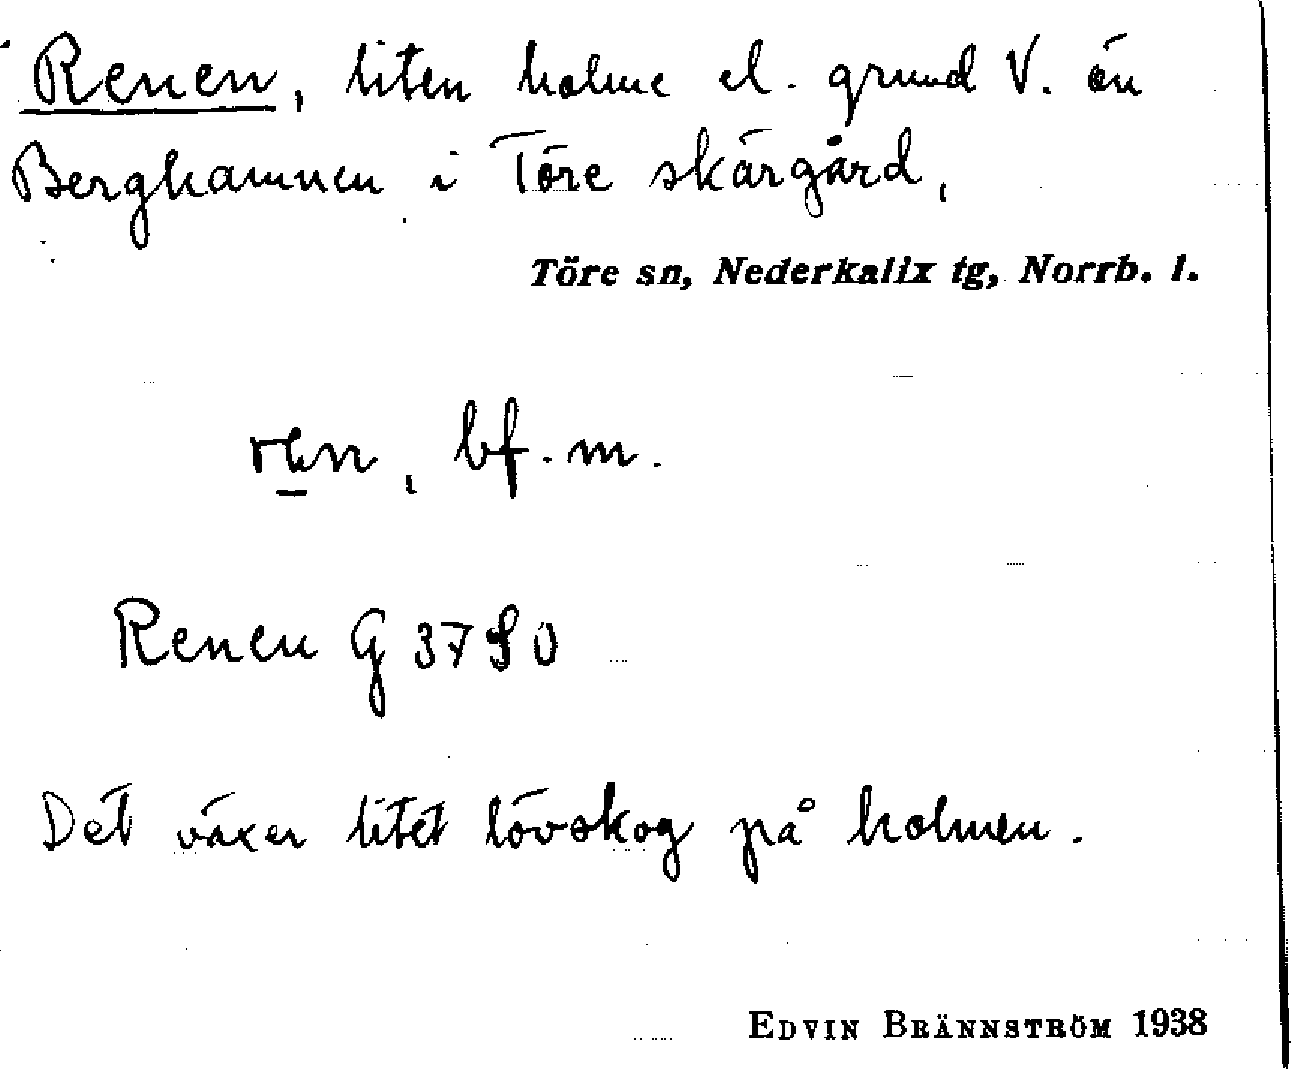 Renen, liten holme el. grund V. ön
Berghamnen i Töre skärgård,
Töre sn, Nederkalix tg, Norrb. l.
bf. m.
Renen G 3790
Det växer litet lövskog på holmen.
EDVIN BRÄNNSTRÖM 1938